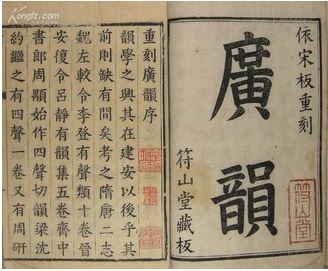 依宋板重刻
廣韻
符山堂藏板
符山堂
重刻廣韻序
韻學之興其在建安以後乎其
前則缺有間矣考之隋唐二志
魏左較令李登有聲類十卷晉
安復令呂靜有韻集五卷齊中
書郎周顒始作四聲切韻梁沈
約繼之有四聲一卷又有周研
Kongfz.com